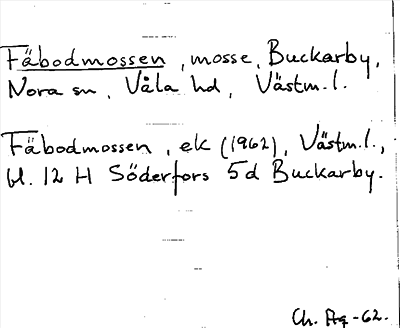 Fäbodmossen, mosse, Buckarby,
Nora sn, Våla hd, Västm.l.
Fäbodmossen, ek (1962), Västm.l.,
bl. 12 H Söderfors 5d Buckarby.
Ch. -62.